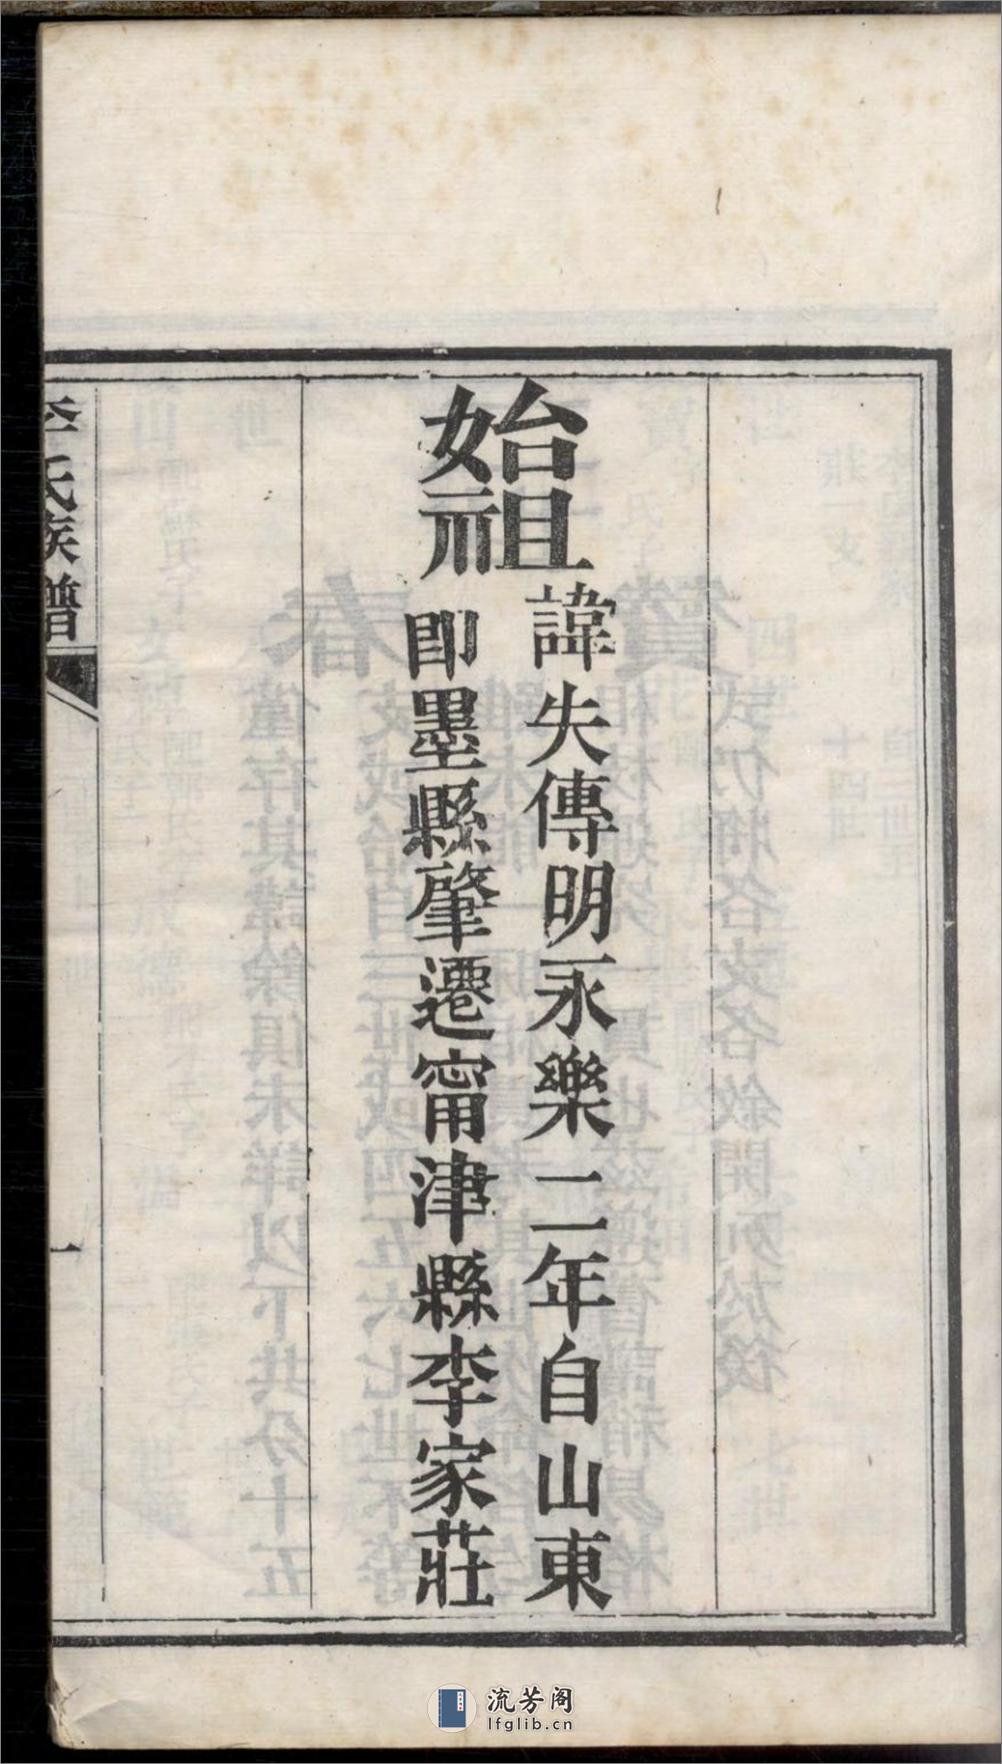 始祖
諱失傳明永樂二年自山東
即墨縣肇遷甯津縣李家莊
李氏族譜
一
流芳阁
lfglib.cn